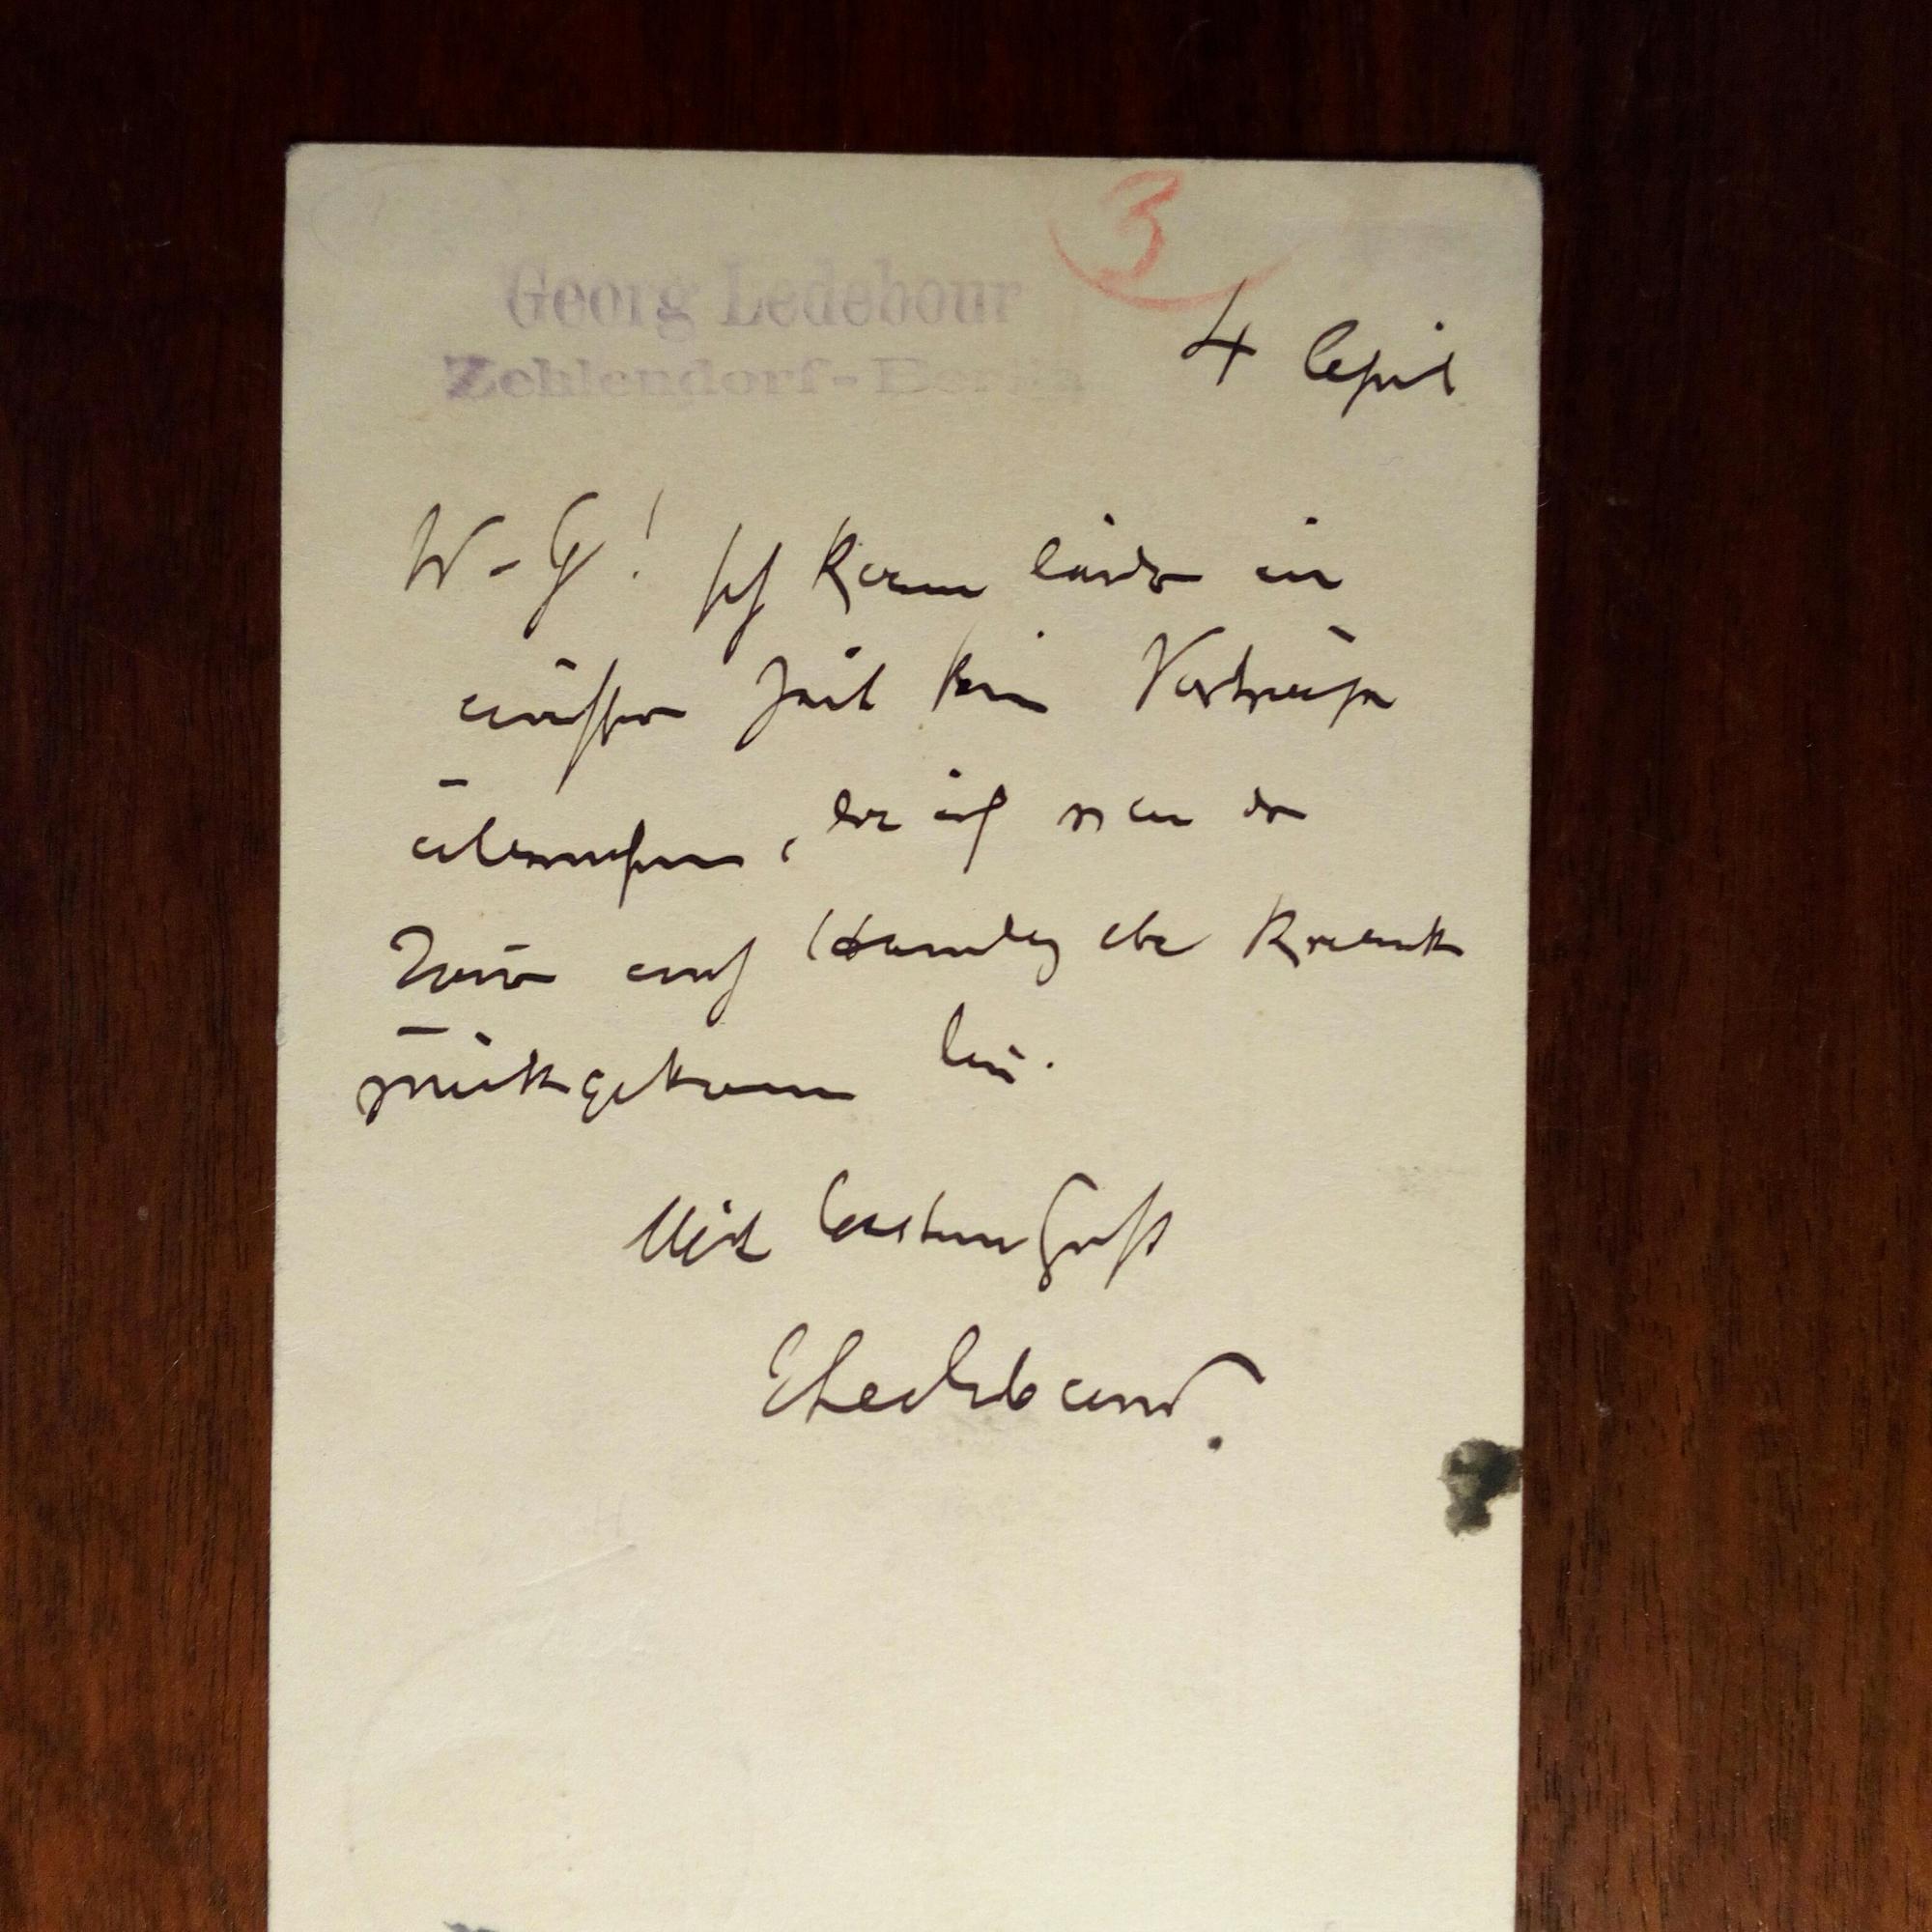 3
Georg Ledebour
Zehlendorf-Berlin
4 April
W. G! Ich kann leider in
nächster Zeit kein Vorträge
übernehmen, da ich von der
Reise nach krank
zurückgekommen bin.
Mit bestem Gruß
GLedebour.